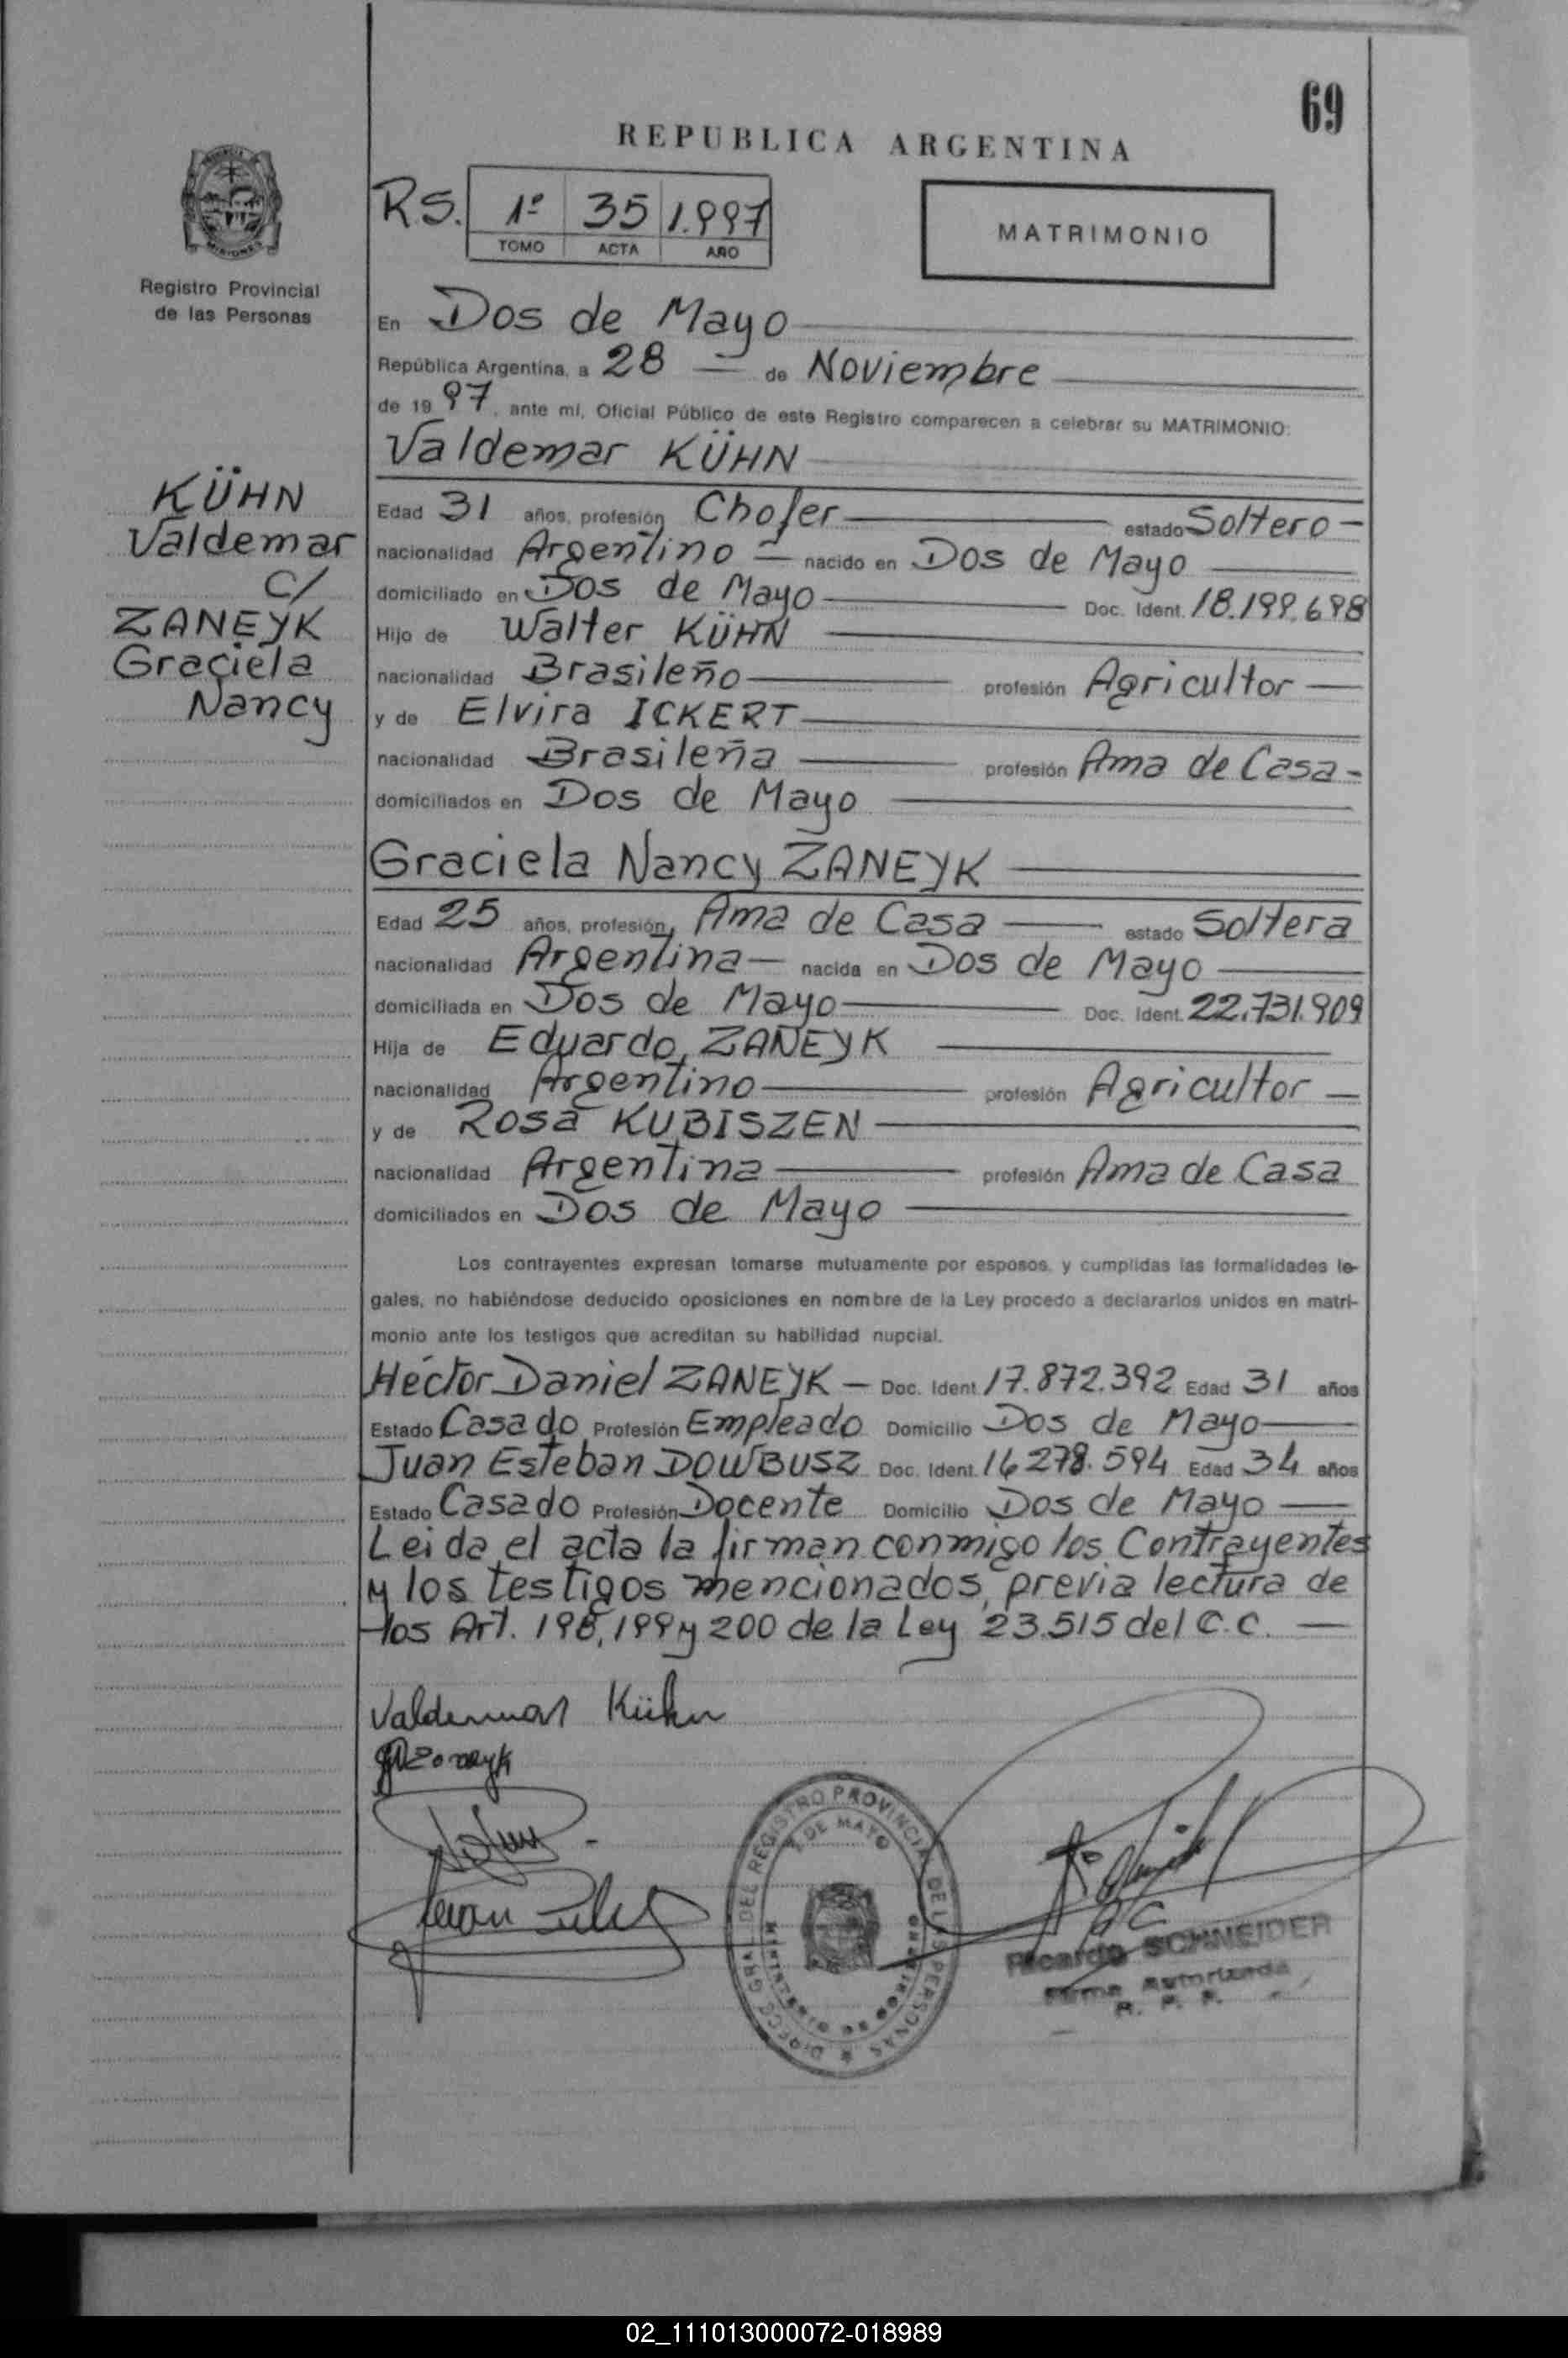 69
REPUBLICA ARGENTINA
R.S. 1º 35 1.997
TOMO ACTA AÑO
MATRIMONIO
Registro Provincial
de las Personas
En Dos de Mayo
República Argentina, a 28 de Noviembre
de 1997, ante mi, Oficial Público de este Registro comparecen a celebrar su MATRIMONIO:
Valdemar KÜHN
KÜHN
Valdemar
C/
ZANEYK
Graciela
Nancy
Edad 31 años, profesión Chofer estado Soltero
nacionalidad Argentino nacido en Dos de Mayo
domiciliado en Dos de Mayo Doc. Ident. 18.199.698
Hijo de Walter KÜHN
nacionalidad Brasileño profesión Agricultor
y de Elvira ICKERT
nacionalidad Brasileña profesión Ama de Casa
domiciliados en Dos de Mayo
Graciela Nancy ZANEYK
Edad 25 años, profesión, Ama de Casa estado Soltera
nacionalidad Argentina nacida en Dos de Mayo
domiciliada en Dos de Mayo Doc. Ident. 22.731.909
Hija de Eduardo ZANEYK
nacionalidad Argentino profesión Agricultor
y de Rosa KUBISZEN
nacionalidad Argentina profesión Ama de Casa
domiciliados en Dos de Mayo
Los contrayentes expresan tomarse mutuamente por esposos, y cumplidas las formalidades le-
gales, no habiéndose deducido oposiciones en nombre de la Ley procedo a declararlos unidos en matri-
monio ante los testigos que acreditan su habilidad nupcial.
Héctor Daniel ZANEYK Doc. Ident. 17.872.392 Edad 31 años
Estado Casado Profesión Empleado Domicilio Dos de Mayo
Juan Esteban DOWBUSZ Doc. Ident. 16.278.594 Edad 34 años
Estado Casado Profesión Docente Domicilio Dos de Mayo
Leida el acta la firman conmigo los Contrayentes
y los testigos mencionados, previa lectura de
los Art. 198, 199 y 200 de la Ley 23.515 del C.C.
Valdemar Kühn
Zaneyk
DIRECC. GRAL. DEL REGISTRO PROVINCIAL DE LAS PERSONAS
2 DE MAYO
MINISTERIO DE GOBIERNO
Ricardo SCHNEIDER
Firma Autorizada
R. P. P.
02_111013000072-018989